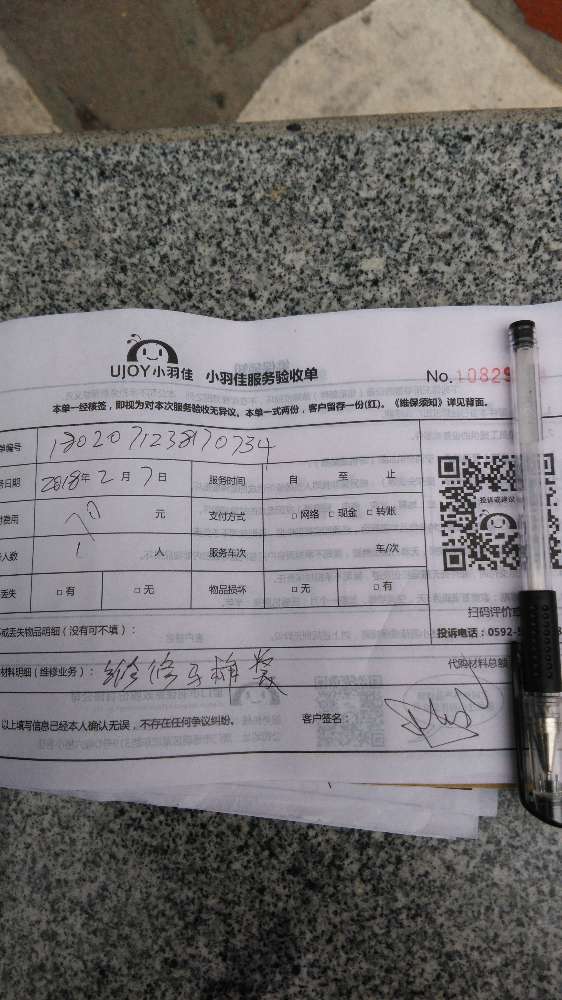 UJOY小羽佳 小羽佳服务验收单 No. 10829
本单一经核签，即视为对本次服务验收无异议。本单一式两份，客户留存一份(红)。《维保须知》详见背面。
单编号 1802071238170734
务日期 2018年 2 月 7 日 服务时间 自 至 止
付费用 70 元 支付方式 □ 网络 □ 现金 □ 转账
人数 1 人 服务车次 车/次
丢失 □ 有 □ 无 物品损坏 □ 无 □ 有
投诉或建议
扫码评价
或丢失物品明细（没有可不填）： 投诉电话：0592-5
材料明细（维修业务）：维修 代购材料总额
以上填写信息已经本人确认无误，不存在任何争议纠纷。 客户签名：